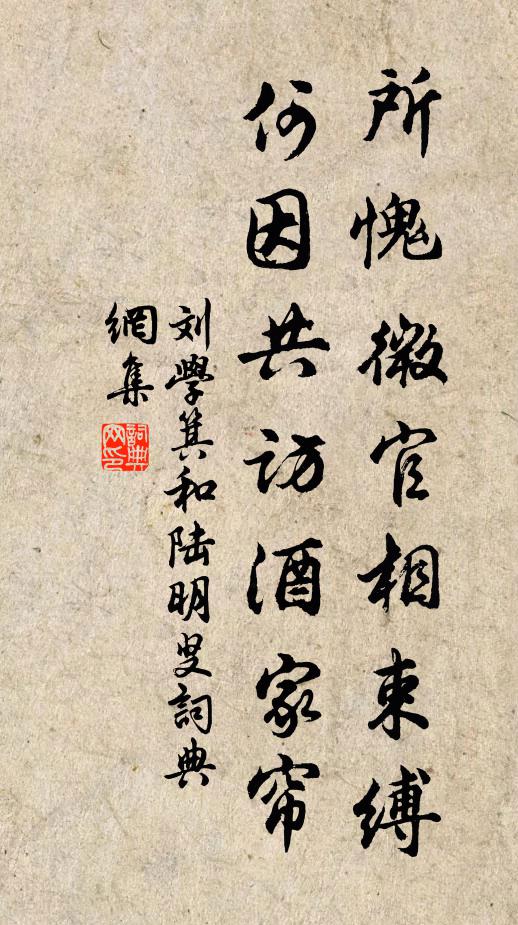 所愧微官相束缚
何因共访酒家帘
刘學箕和陆明叟詞典
網集
詞典
网印